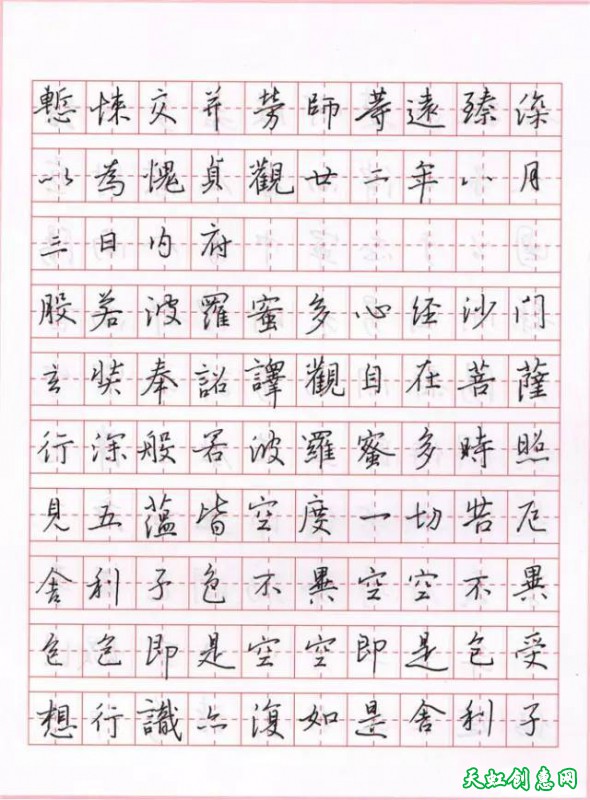 慙悚交并勞師等遠臻深
以為愧貞觀廿二年八月
三日內府
般若波羅蜜多心经沙门
玄奘奉詔譯觀自在菩薩
行深般若波羅蜜多時照
見五蘊皆空度一切苦厄
舍利子色不異空空不異
色色即是空空即是色受
想行識亦復如是舍利子
天虹创意网